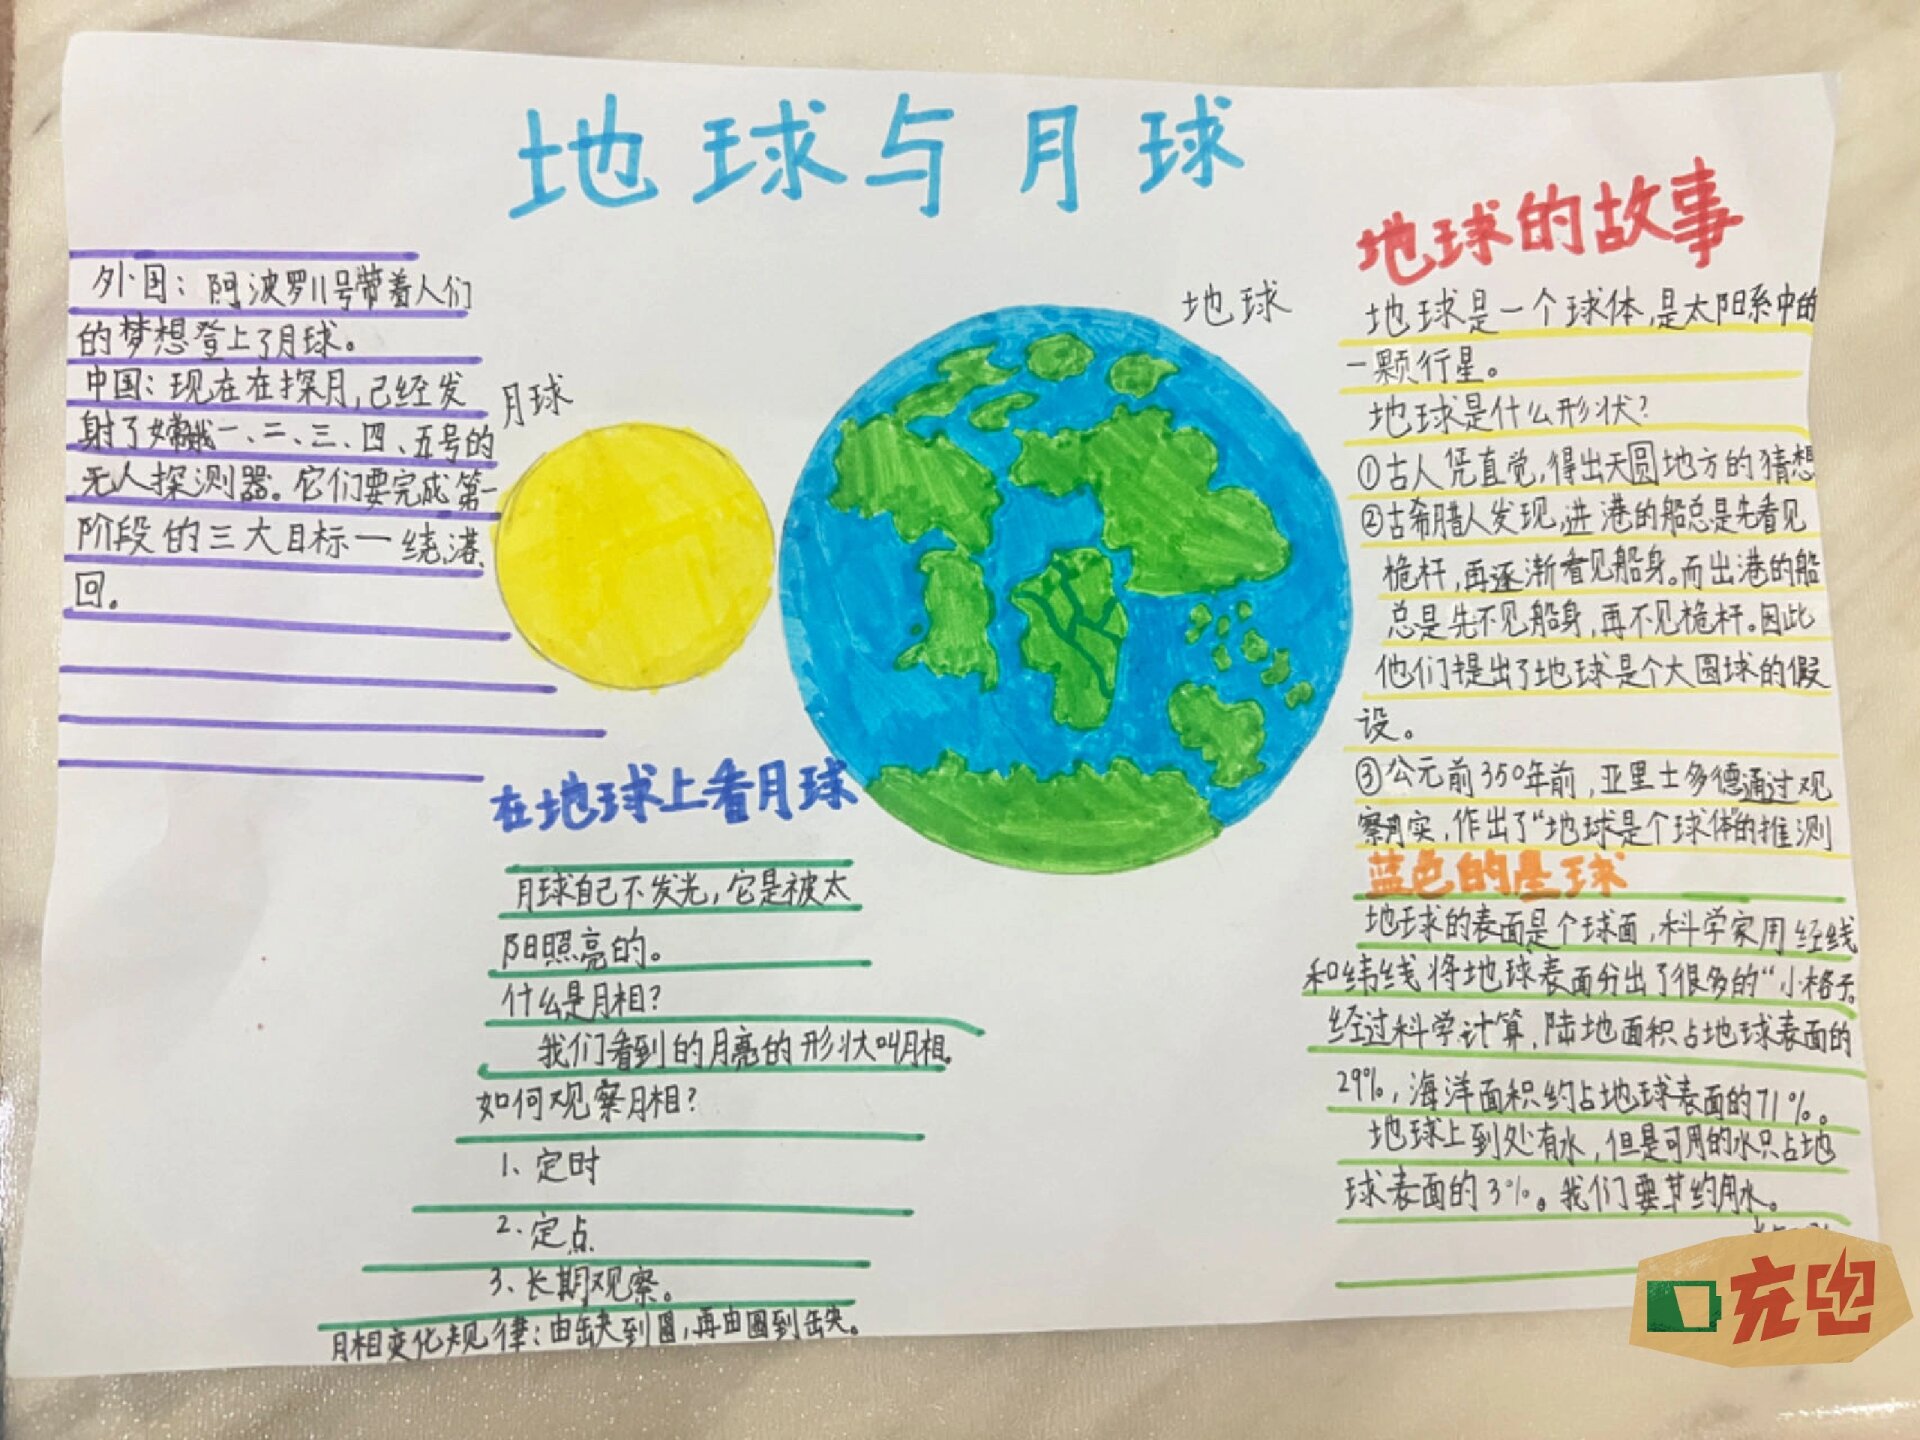 地球与月球
外国：阿波罗11号带着人们
的梦想登上了月球。
中国：现在在探月，己经发
射了嫦娥一、二、三、四、五号的
无人探测器。它们要完成第一
阶段的三大目标一绕、港、
回。
月球
地球
在地球上看月球
月球自己不发光，它是被太
阳照亮的。
什么是月相？
我们看到的月亮的形状叫月相。
如何观察月相？
1、定时
2、定点
3、长期观察。
月相变化规律：由缺到圆，再由圆到缺。
地球的故事
地球是一个球体，是太阳系中的
一颗行星。
地球是什么形状？
①古人凭直觉，得出天圆地方的猜想
②古希腊人发现，进港的船总是先看见
桅杆，再逐渐看见船身。而出港的船
总是先不见船身，再不见桅杆。因此
他们提出了地球是个大圆球的假
设。
③公元前350年前，亚里士多德通过观
察月实，作出了“地球是个球体”的推测
蓝色的星球
地球的表面是个球面，科学家用经线
和纬线将地球表面分出了很多的“小格子。
经过科学计算，陆地面积占地球表面的
29%，海洋面积约占地球表面的71%。
地球上到处有水，但是可用的水只占地
球表面的3%。我们要节约用水。
充电